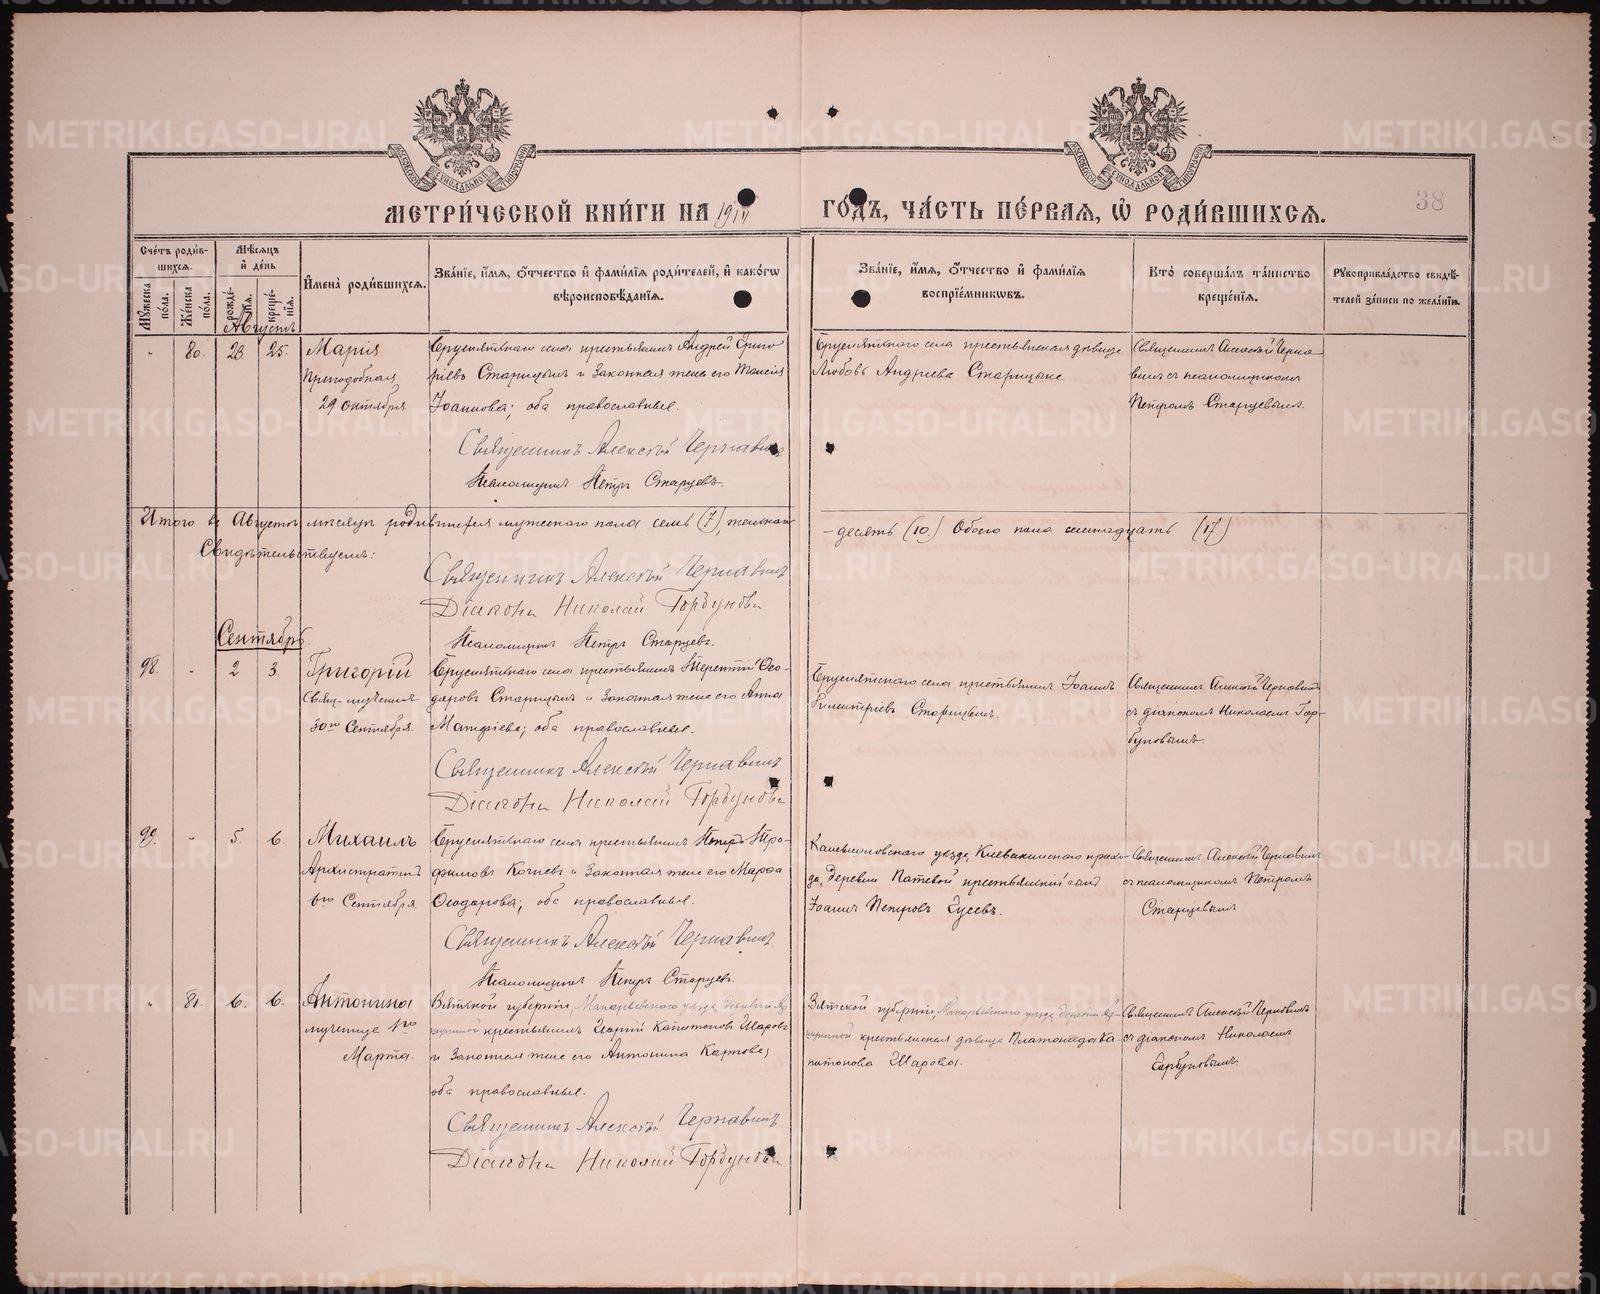 МЕТРИ́ЧЕСКОЙ КНИ́ГИ НА 1914
ГО́ДЪ, ЧА́СТЬ ПЕ́РВАЯ, Ѡ҆ РОДИ́ВШИХСЯ.
38
Сче́тъ роди́в-
шихся.
Мꙋ́жеска по́ла.
Же́нска по́ла.
Мѣ́сяцъ
и҆ де́нь
рожде́нїя.
креще́нїя.
И҆мена̀ роди́вшихся.
Зва́нїе, и҆́мя, ѻ҆́тчество и҆ фами́лїя роди́телей, и҆ како́гѡ
вѣроисповѣ́данїя.
Зва́нїе, и҆́мя, ѻ҆́тчество и҆ фами́лїя
воспрїе́мникѡвъ.
Кто̀ соверша́лъ та́инство
креще́нїя.
Рꙋкоприкла́дство свидѣ́-
телей за́писи по жела́нїю.
Августъ
" 80. 23. 25. Марія
Преподобная
29 октября
Бруснятскаго села крестьянинъ Андрей Григо-
ріевъ Старицынъ и Законная жена его Таисія
Іоаннова; оба православные.
Священникъ Алексѣй Чернавинъ
Псаломщикъ Петръ Старцевъ.
Бруснятскаго села крестьянская дѣвица
Любовь Андреева Старицына.
Священникъ Алексѣй Черна-
винъ съ псаломщикомъ
Петромъ Старцевымъ.
Итого въ Августѣ мѣсяцѣ родившихся мужескаго пола семь (7), женскаго
- десять (10.) Обоего пола семнадцать (17.)
Свидѣтельствуемъ:
Священникъ Алексѣй Чернавинъ
Діаконъ Николай Горбуновъ
Псаломщикъ Петръ Старцевъ.
Сентябрь.
98. " 2 3. Григорій
Свящ-мученикъ
30го Сентября.
Бруснятскаго села крестьянинъ Терентій Ѳео-
доровъ Старицынъ и Законная жена его Анна
оба православные.
Священникъ Алексѣй Чернавинъ
Діаконъ Николай Горбуновъ
Бруснятскаго села крестьянинъ Іоаннъ
Димитріевъ Старицынъ.
Священникъ Алексѣй Чернавинъ
съ діакономъ Николаемъ Гор-
буновымъ.
99. " 5. 6. Михаилъ
Архистратигъ
6го Сентября
Бруснятскаго села крестьянинъ Петръ Тро-
фимовъ Кочневъ и Законная жена его Марѳа
Ѳеодорова; оба православные.
Священникъ Алексѣй Чернавинъ.
Псаломщикъ Петръ Старцевъ.
Камышловскаго уѣзда, прихо-
да, деревни крестьянскій сынъ
Іоаннъ Петровъ Гусевъ.
Священникъ Алексѣй Чернавинъ
съ псаломщикомъ Петромъ
Старцевымъ
" 81. 6. 6. Антонина
мученица 1го
Марта.
Вятской губерніи, Макарьевскаго уѣзда, деревни
крестьянинъ Георгій Капитоновъ Шаровъ
и Законная жена его Антонина Карпова;
оба православные.
Священникъ Алексѣй Чернавинъ
Діаконъ Николай Горбуновъ
Вятской губерніи, Макарьевскаго уѣзда, деревни
крестьянская дѣвица Платонида Ка-
питонова Шарова.
Священникъ Алексѣй Чернавинъ
съ діакономъ Николаемъ
Горбуновымъ.
METRIKI.GASO-URAL.RU